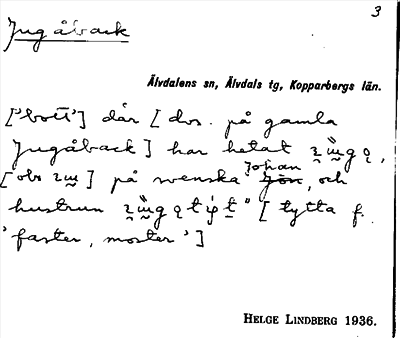 3
Jugåback
Älvdalens sn, Älvdals tg, Kopparbergs län.
['bott'] där [dvs. på gamla
Jugåback] har hetat
[obs ] på svenska Johan, och
hustrun [tytta f.
'faster, moster']
HELGE LINDBERG 1936.